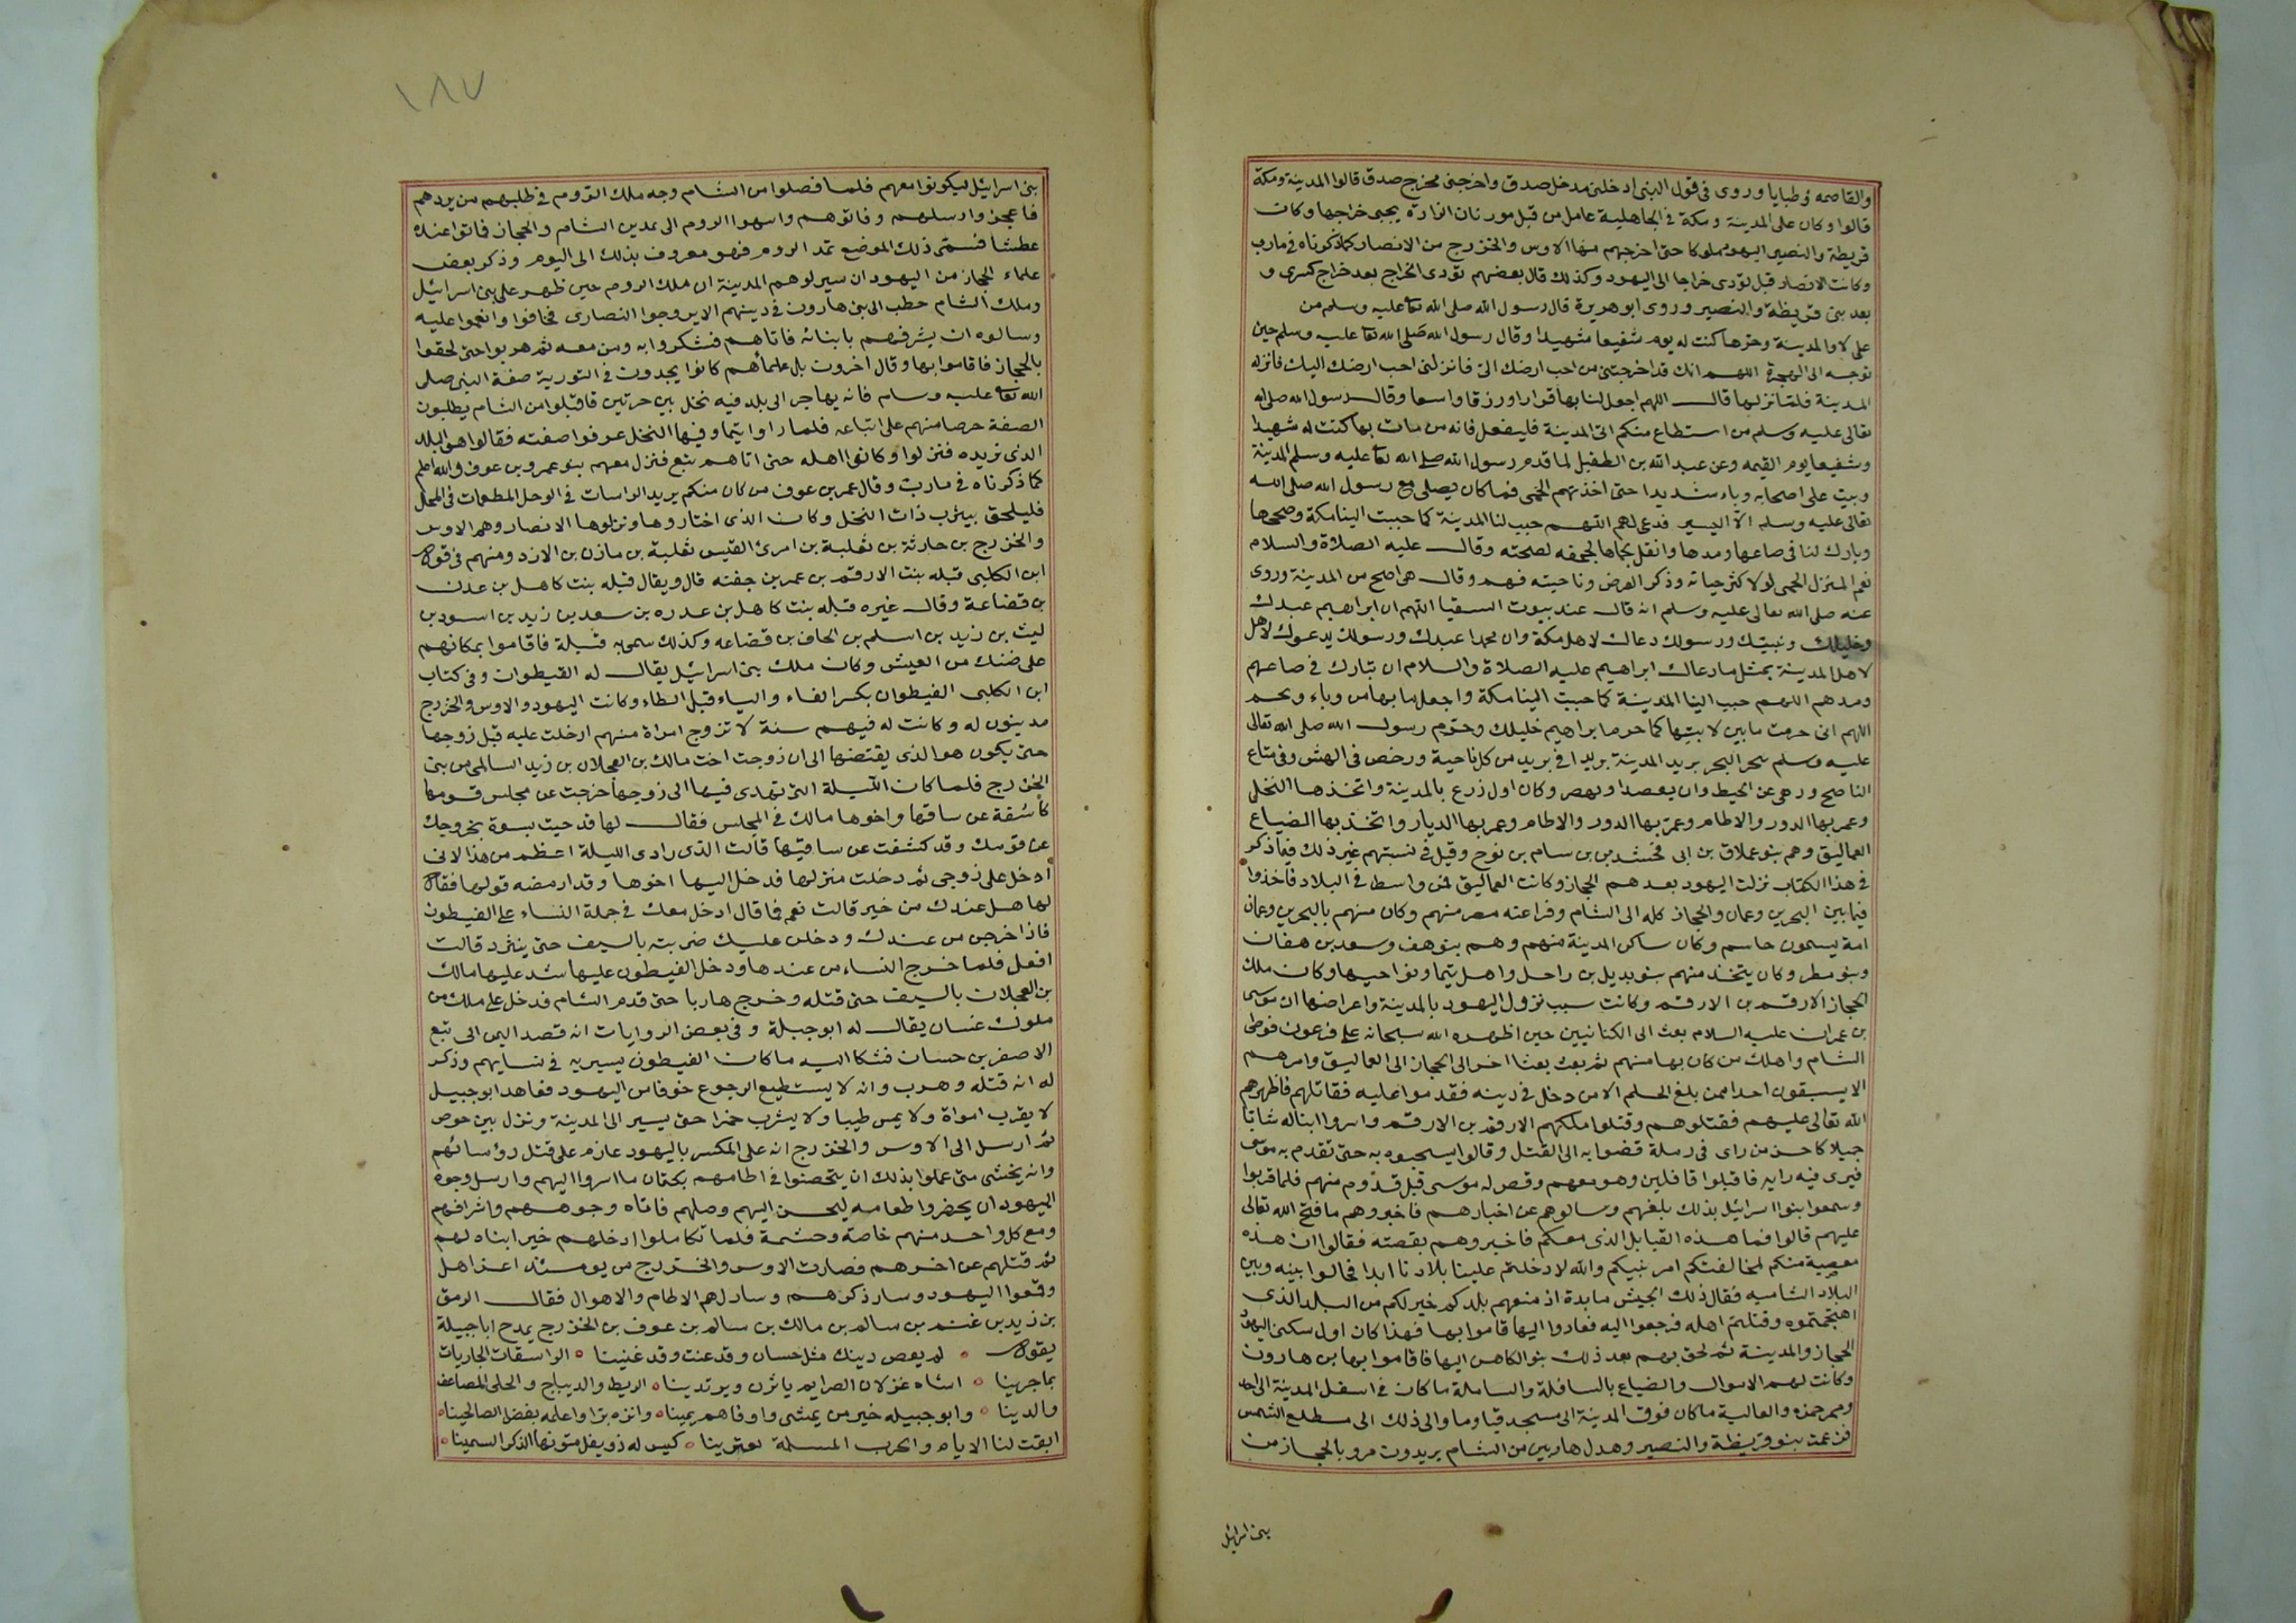 والقاصمه وطبابا وروى فى قول النبى ادخلنى مدخل صدق واخرجنى مخرج صدق قالوا المدينة ومكة
قالوا وكان على المدينة ومكة فى الجاهلية عامل من قبل مورنان انزاره يجبى خراجها وكانت
قريظة والنصير اليهود ملوكا حتى اخرجهم منها الاوس والخزرج من الانصار كما ذكرناه فى مارب
وكانت الانصار قبل تؤدى خراجا الى اليهود وكذلك قال بعضهم تؤدى الخراج بعد خراج كسرى و
بعد بنى قريظة والنصير وروى ابو هريرة قال رسول الله صلى الله تعا عليه وسلم من
على لاوا المدينة وحرها كنت له يوم شفيعا شهيدا وقال رسول الله صلى الله تعا عليه وسلم حين
توجه الى الهجرة اللهم انك قد اخرجتنى من احب ارضك الى فانزلنى احب ارضك اليك فانزله
المدينة فلما نزلها قال اللهم اجعل لنا بها قرارا ورزقا واسعا وقال رسول الله صلى الله
تعالى عليه وسلم من استطاع منكم اتى المدينة فليفعل فانه من مات بها كنت له شهيدا
وشفيعا يوم القيمه وعن عبد الله بن الطفيل لما قدم رسول الله صلى الله تعا عليه وسلم المدينة
وبيت على اصحابه وباء شديدا حتى اخذتهم الحمى فما كان يصلى مع رسول الله صلى الله
تعالى عليه وسلم الا اليسير فدعى لهم اللهم حبب لنا المدينة كما حببت الينا مكة وصححها
وبارك لنا فى صاعها ومدها وانقل حماها لجحفه لصحته وقال عليه الصلاة والسلام
نعم المنزل الحمى لولا كثر حياته وذكر العرض وناحيته فهم وقال هى اصح من المدينة وروى
عنه صلى الله تعالى عليه وسلم انه قال عند بيوت السقيا اللهم ان ابراهيم عبدك
وخليلك ونبيك ورسولك دعاك لاهل مكة وان محمدا عبدك ورسولك يدعوك لاهل
لاهل المدينة بمثل ما دعاك ابراهيم عليه الصلاة والسلام ان تبارك فى صاعهم
ومدهم اللهم حبب الينا المدينة كما حببت الينا مكة واجعل ما بها من وباء وبحم
اللهم انى حرمت ما بين لابتيها كما حرم ابراهيم خليلك وحرم رسول الله صلى الله تعالى
عليه وسلم سحر البحر بريد المدينة بريدا فى بريد من كل ناحية ورخص فى الهش وفى متاع
الناضح ورهى عن الخبط وان يعصدا ويهصر وكان اول زرع بالمدينة واتخذها النخلى
وعمر بها الدور والاطام وعمر بها الدور والاطام وعمر بها الديار واتخذ بها الضياع
العماليق وهم بنو عملاق بن ابى فخشد من بن سام بن نوح وقيل فى نسبتهم غير ذلك فيما ذكر
فى هذا الكتاب نزلت اليهود بعدهم الحجاز وكانت العماليق ممن واسط فى البلاد فاخذوا
فيما بين البحرين وعمان والحجاز كله الى الشام وفراعنه مصر منهم وكان منهم بالبحرين وعمان
امة يسمون جاسم وكان ساكن المدينة منهم وهم بنوهف وسعد بن هفان
وبنو مطر وكان يتخذ منهم بنو بديل بن راحل واهل تيما ونواحيها وكان ملك
الحجاز الارقم بن الارقم وكانت سبب نزول اليهود بالمدينة واعراضها ان موسى
بن عمران عليه السلام بعث الى الكنانيين حين اظهره الله سبحانه على فرعون فوطى
الشام واهلك من كان بها منهم ثم بعث بعثا اخر الى الحجاز الى العماليق وامرهم
الا يسبقون احدا ممن بلغ الحلم الا من دخل فى دينه فقدموا عليه فقاتلهم فاظهرهم
الله تعالى عليهم فقتلوهم وقتلوا ملكهم الارقم بن الارقم واسروا ابنا له شابا
جميلا كاحسن من راى فى رملة قضوا به الى القتل وقالوا يستحيوه به حتى تقدم به موسى
فيرى فيه رايه فاقبلوا قافلين وهو معهم وقص له موسى قبل قدوم منهم فلما قربوا
وسمعوا بنوا اسرائيل بذلك بلغهم وسالوهم عن اخبارهم فاخبروهم ما فتح الله تعالى
عليهم قالوا فما هذه القبايل الذى معكم فاخبروهم بقصته فقالوا ان هذه
معصية منكم لمخالفتكم امر نبيكم والله لا دخلتم علينا بلادنا ابدا فحالوا بينه وبين
البلاد الشاميه فقال ذلك الجيش ما بدة اذ منعهم بلدكم خير لكم من البلد الذى
اهتجتموه وقتلتم اهله فرجعوا اليه فعادوا اليها قاموا بها فهذا كان اول سكنى اليهود
الحجاز والمدينة ثم لحق بهم بعد ذلك بنو الكاهن اليها فاقاموا بها بن هارون
وكانت لهم الاموال والضياع بالسافلة والساملة ما كان فى اسفل المدينة الى احد
وممر حمزه والعالية ما كان فوق المدينة الى مسجد قبا وما والى ذلك الى مسطلع الشمس
فزعمت بنو قريظة والنصير وهدل هاربين من الشام يريدون مرو بالحجاز من
بنى اسرائيل
١٨٧
بنى اسرائيل ليكونوا معهم فلما فصلوا من الشام وجه ملك الروم فى طلبهم من يردهم
فاعجز وارسلهم وفاتوهم واسهوا الروم الى عدين الشام والحجاز فماتوا عنده
عطشا فسمى ذلك الموضع تمد الروم فهو معروف بذلك الى اليوم وذكر بعض
علماء الحجاز من اليهود ان سيرلوهم المدينة ان ملك الروم حين ظهر على بنى اسرائيل
وملك الشام خطب الى بنى هارون فى دينهم الا يزوجوا النصارى فخافوا وانعموا عليه
وسالوه ان يشرفهم باتيانه فاتاهم فشكروا به ومن معه ثم هربوا حتى لحقوا
بالحجاز فاقاموا بها وقال اخرون بل علماؤهم كانوا يجدون فى التورية صفة النبى صلى
الله تعا عليه وسلم فانه يهاجر الى بلد فيه نخل بين حرتين فاقبلوا من الشام يطلبون
الصفة حرصا منهم على اتباعه فلما راوا تيما وفيها النخل عرفوا صفته فقالوا هو البلد
الذى نريده فنزلوا وكانوا اهله حتى اتاهم تبع فنزل معهم بنو عمرو بن عوف والله اعلم
كما ذكرناه فى مارب وقال عمر بن عوف من كان منكم يريد الراسات فى الوحل المطعمات فى المحل
فليلحق بيثرب ذات النخل وكان الذى اختاروها ونزلوها الانصار وهم الاوس
والخزرج بن حارثة بن ثعلبة بن امرئ القيس ثعلبة بن مازن بن الازد ومنهم فى قول
ابن الكلبى قيله بنت الارقم بن عمر بن جفنه قال ويقال قيله بنت كاهل بن عدن
بن قضاعة وقال غيره قيله بنت كاهل بن عدره بن سعد بن زيد بن اسود بن
ليث بن زيد بن اسلم بن الحاف بن قضاعه وكذلك سمى بنى قيلة فاقاموا بمكانهم
على ضنك من العيش وكان ملك بنى اسرائيل يقال له القيطوان وفى كتاب
ابن الكلبى الفيطوان بكسر الفاء والياء قبل الطاء وكانت اليهود والاوس والخزرج
مدينون له وكانت له فيهم سنة لا تزوج امراة منهم ادخلت عليه قبل زوجها
حتى يكون هو الذى يقتضها الى ان زوجت اخت مالك بن العجلان بن زيد السالمى من بنى
الخزرج فلما كان الليلة التى تهدى فيها الى زوجها خرجت عن مجلس قومها
كاشفة عن ساقها واخوها مالك فى المجلس فقال لها قد جيت بسوة بخروجك
عن قومك وقد كشفت عن ساقيها قالت الذى رادى الليلة اعظم من هذا لانى
ادخل على زوجى ثم دخلت منزلها فدخل اليها اخوها وقد ارمضه قولها فقال
لها هل عندك من خير قالت نعم فما قال ادخل معك فى جملة النساء على الفيطون
فاذا خرجن من عندك ودخلن عليك ضربته بالسيف حتى يبرد قالت
افعل فلما خرج النساء من عندها ودخل الفيطون عليها شد عليها مالك
بن العجلان بالسيف حتى قتله وخرج هاربا حتى قدم الشام فدخل على ملك من
ملوك غسان يقال له ابو جبيلة وفى بعض الروايات انه قصد اليمن الى تبع
الاصغر بن حسان فشكا اليه ما كان الفيطون يسير به فى نسايهم وذكر
له انه قتله وهرب وانه لا يستطيع الرجوع خوفا من اليهود فعاهد ابو جبيل
لا يقرب امراة ولا يمس طيبا ولا يشرب خمرا حتى يسير الى المدينة ونزل بين حوض
ثم ارسل الى الاوس والخزرج انه على المكسر باليهود عازم على قتل رؤسائهم
وانه يخشى متى عملوا بذلك ان يتحصنوا فى اطامهم بكتمان ما اسروا اليهم وارسل وجوه
اليهود ان يحضروا طعامه ليحسن اليهم وصلهم فاتاه وجوههم واشرافهم
ومع كل واحد منهم خاصة وحشمة فلما تكاملوا ادخلهم خير ابناه لهم
ثم قتلهم عن اخرهم فصارت الاوس والخزرج من يومئذ اعز اهل
وقمعوا اليهود وسار ذكرهم وسار لهم الاطام والاهوال فقال الرمق
بن زيد بن غنم بن سالم بن مالك بن سالم بن عوف بن الخزرج يمدح ابا جبيلة
يقول ٥ لم يعص دينك مثل حسان وقد عنت وقد غنينا ٥ الراسقات الجاريات
بماجرينا ٥ اشاه غزلان الصرايم ياثرن ويرتدينا ٥ الريط والديباج والحلى المضاعف
والدينا ٥ وابو جبيله خير من يمشى واوفاهم يمينا ٥ وانزه برا واعلمه بفضل الصالحينا ٥
ابقت لنا الايام والحرب المسلمة تعترينا ٥ كبس له ذو يفل متونها الذكر السمينا ٥